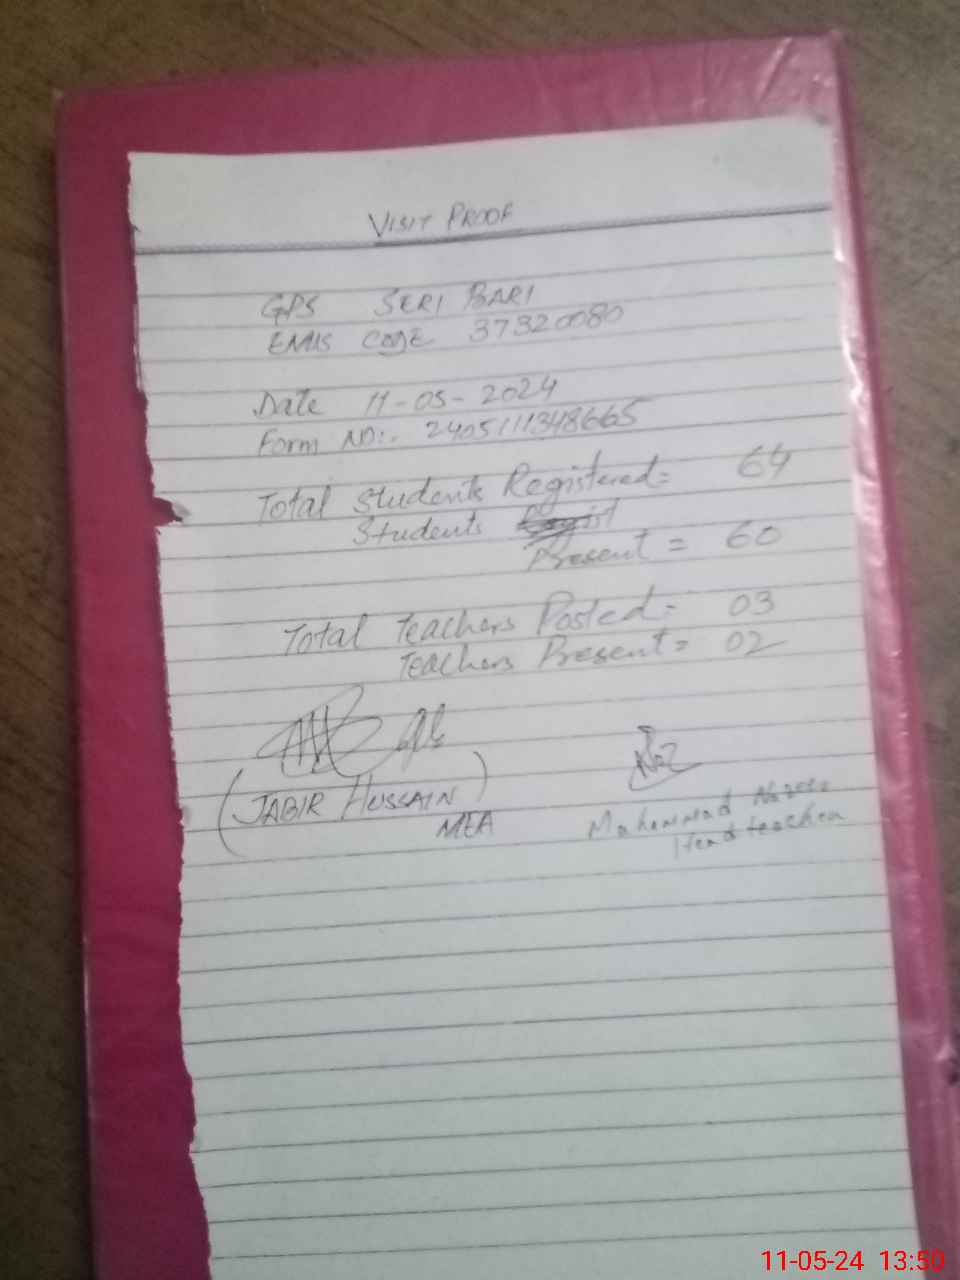 VISIT PROOF
GPS SERI BARI
EMIS CODE 37320080
Date 11-05-2024
Form NO:. 2405111348665
Total Students Registered= 64
Students
Present = 60
Total Teachers Posted= 03
Teachers Present= 02
(JABIR HUSSAIN)
MEA
Muhammad
Head teacher
11-05-24 13:50